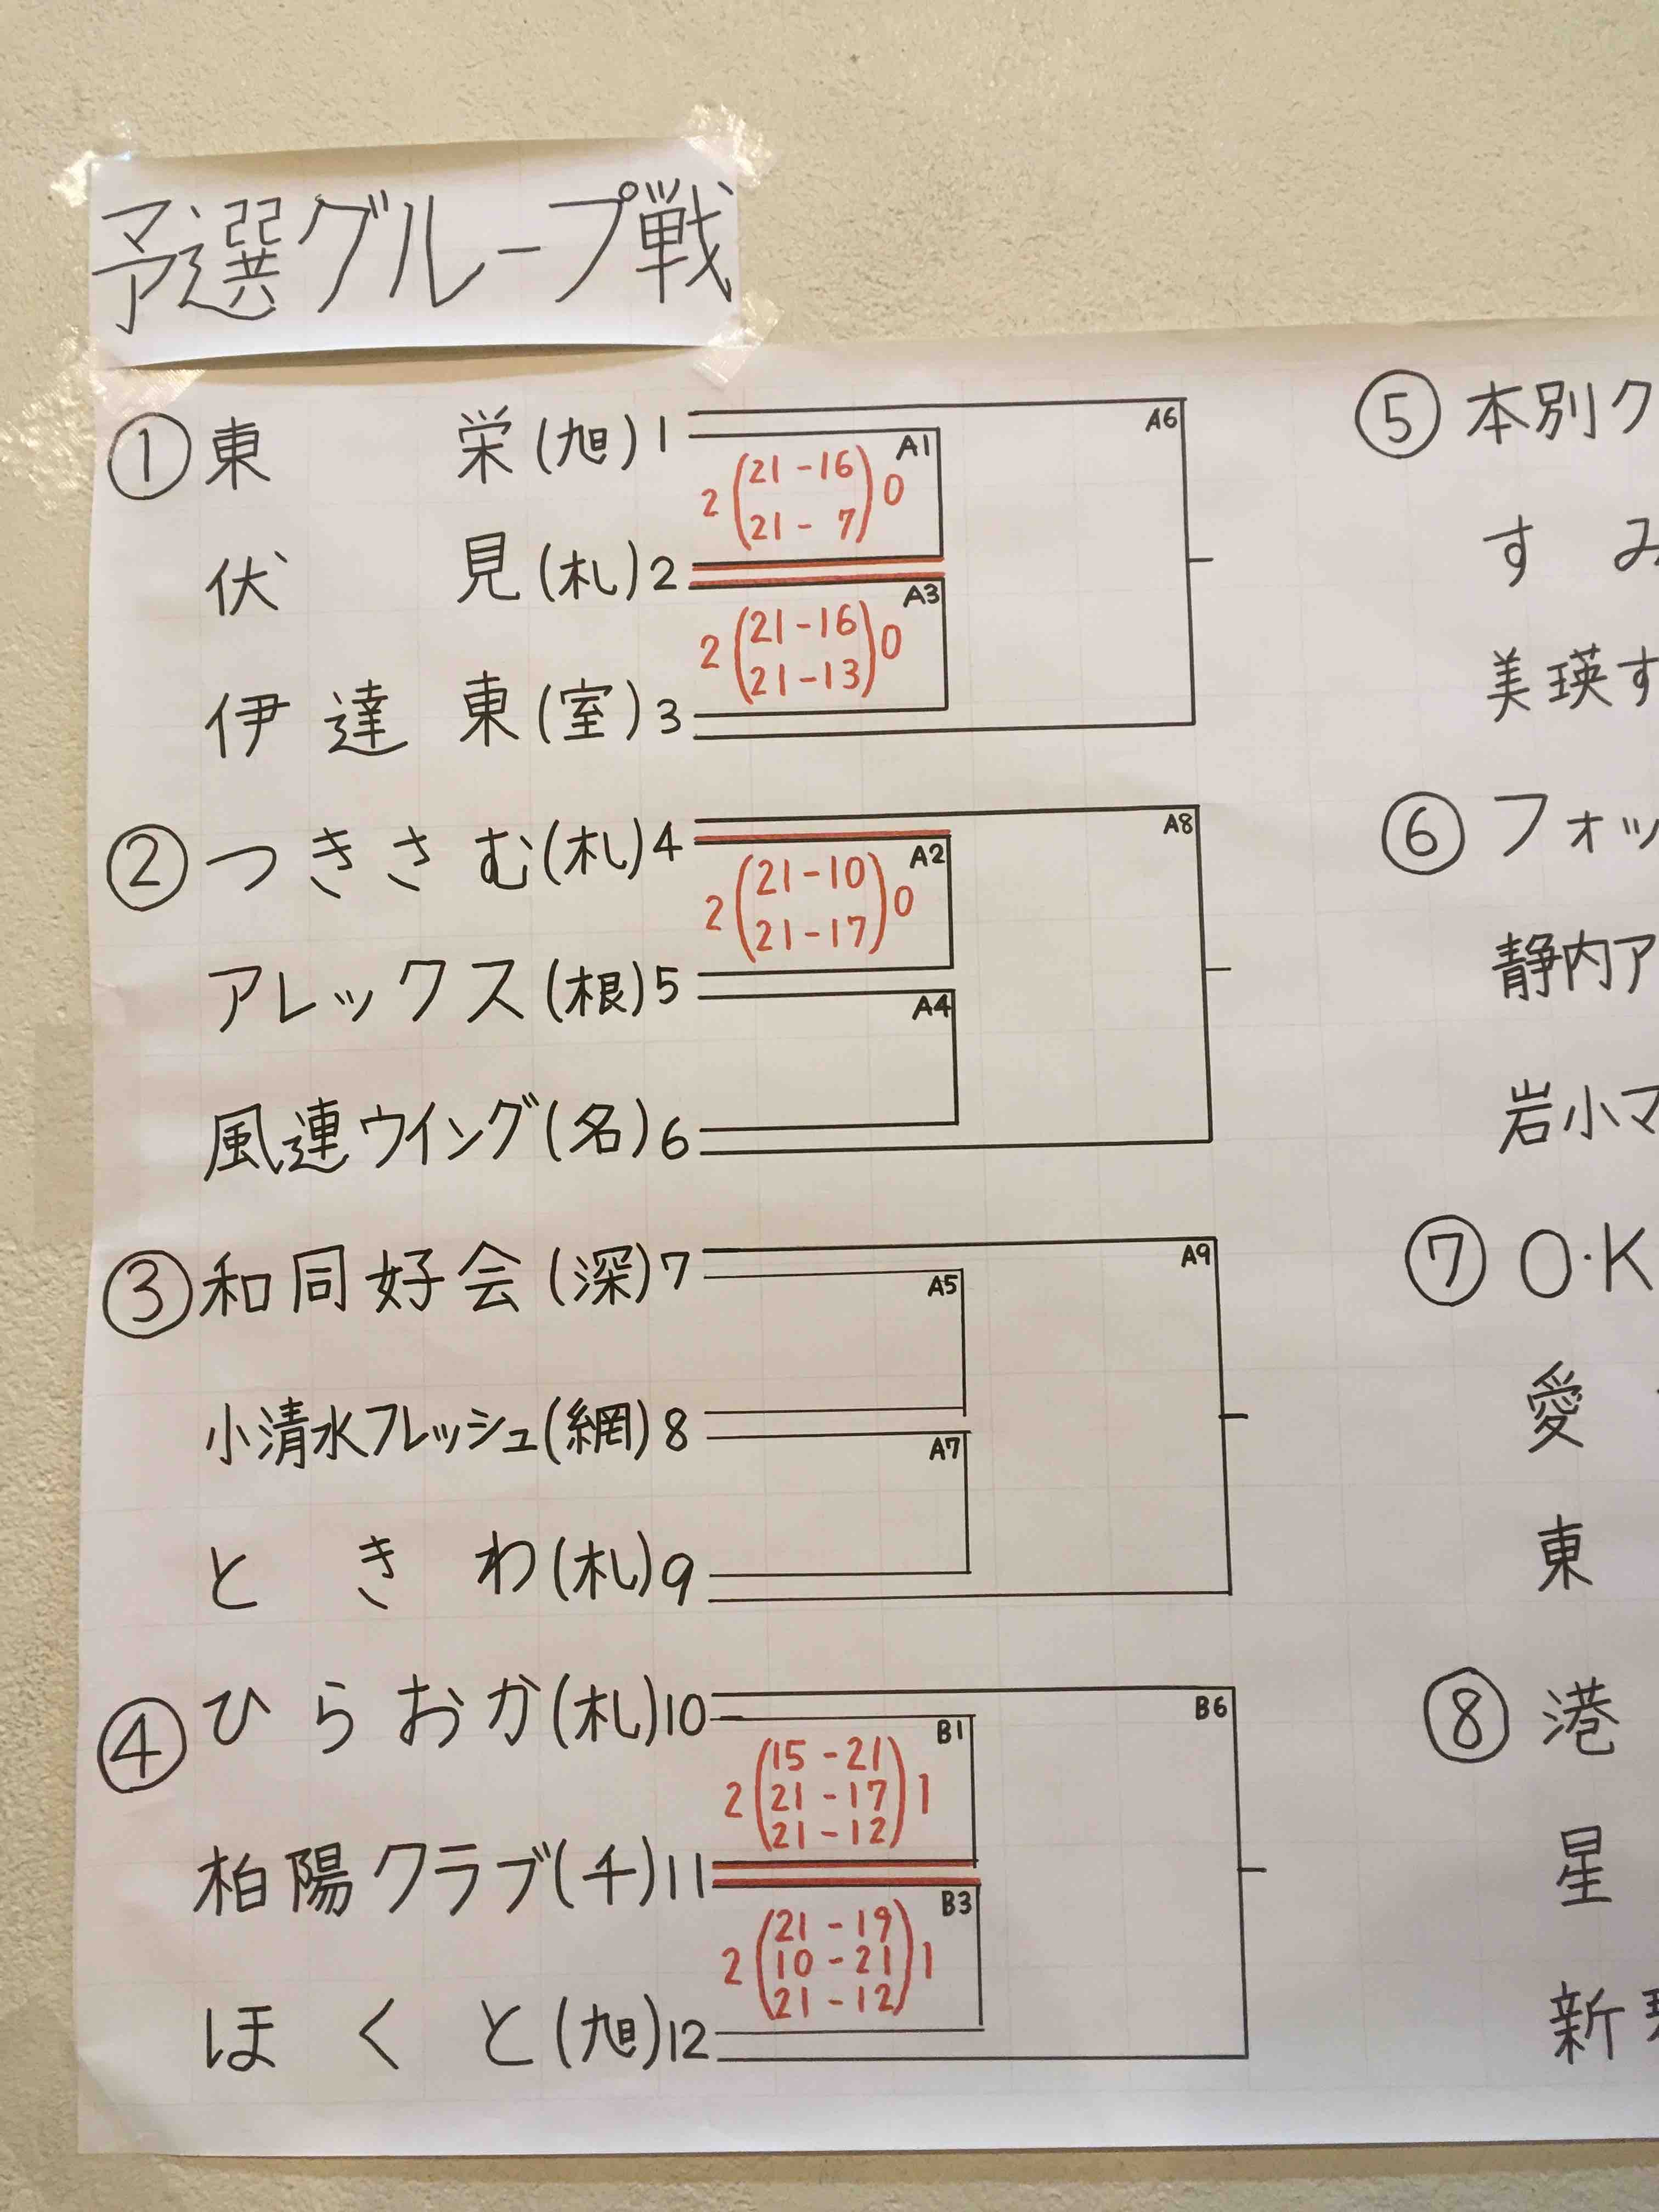 予選グループ戦
① 東 栄 (旭) 1
A1
A6
2 (21-16 21-7) 0
伏 見 (札) 2
A3
2 (21-16 21-13) 0
伊達東 (室) 3
② つきさむ (札) 4
A2
A8
2 (21-10 21-17) 0
アレックス (根) 5
A4
風連ウイング (名) 6
③ 和同好会 (深) 7
A5
A9
小清水フレッシュ (網) 8
A7
ときわ (札) 9
④ ひらおか (札) 10
B1
B6
2 (15-21 21-17 21-12) 1
柏陽クラブ (千) 11
B3
2 (21-19 10-21 21-12) 1
ほくと (旭) 12
⑤ 本別ク
すみ
美瑛す
⑥ フォッ
静内ア
岩小マ
⑦ O・K
愛
東
⑧ 港
星
新